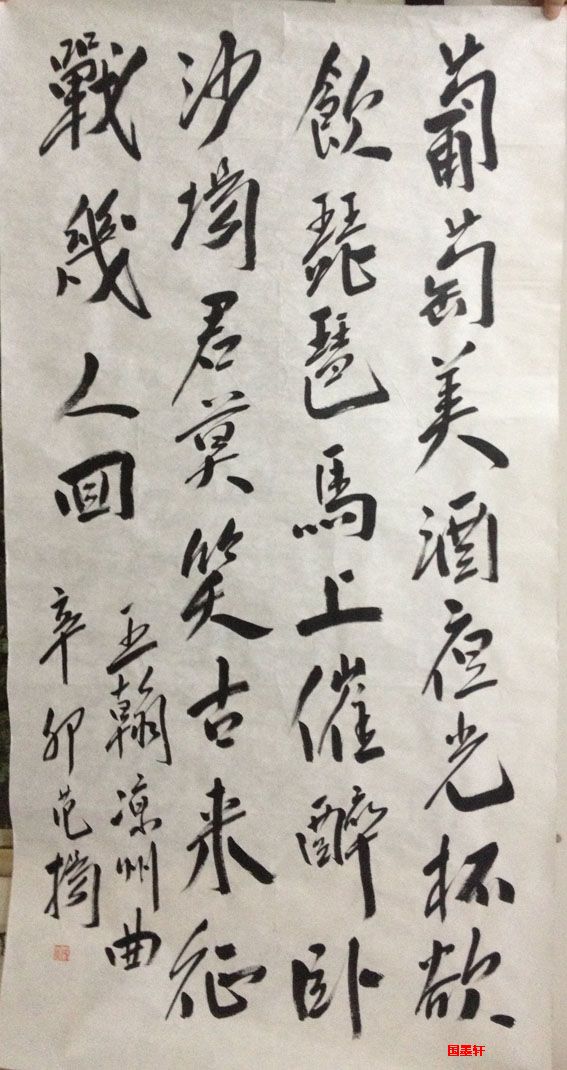 葡萄美酒夜光杯欲
飲琵琶馬上催醉卧
沙場君莫笑古來征
戰幾人回
王翰凉州曲
辛卯范揚
国墨轩